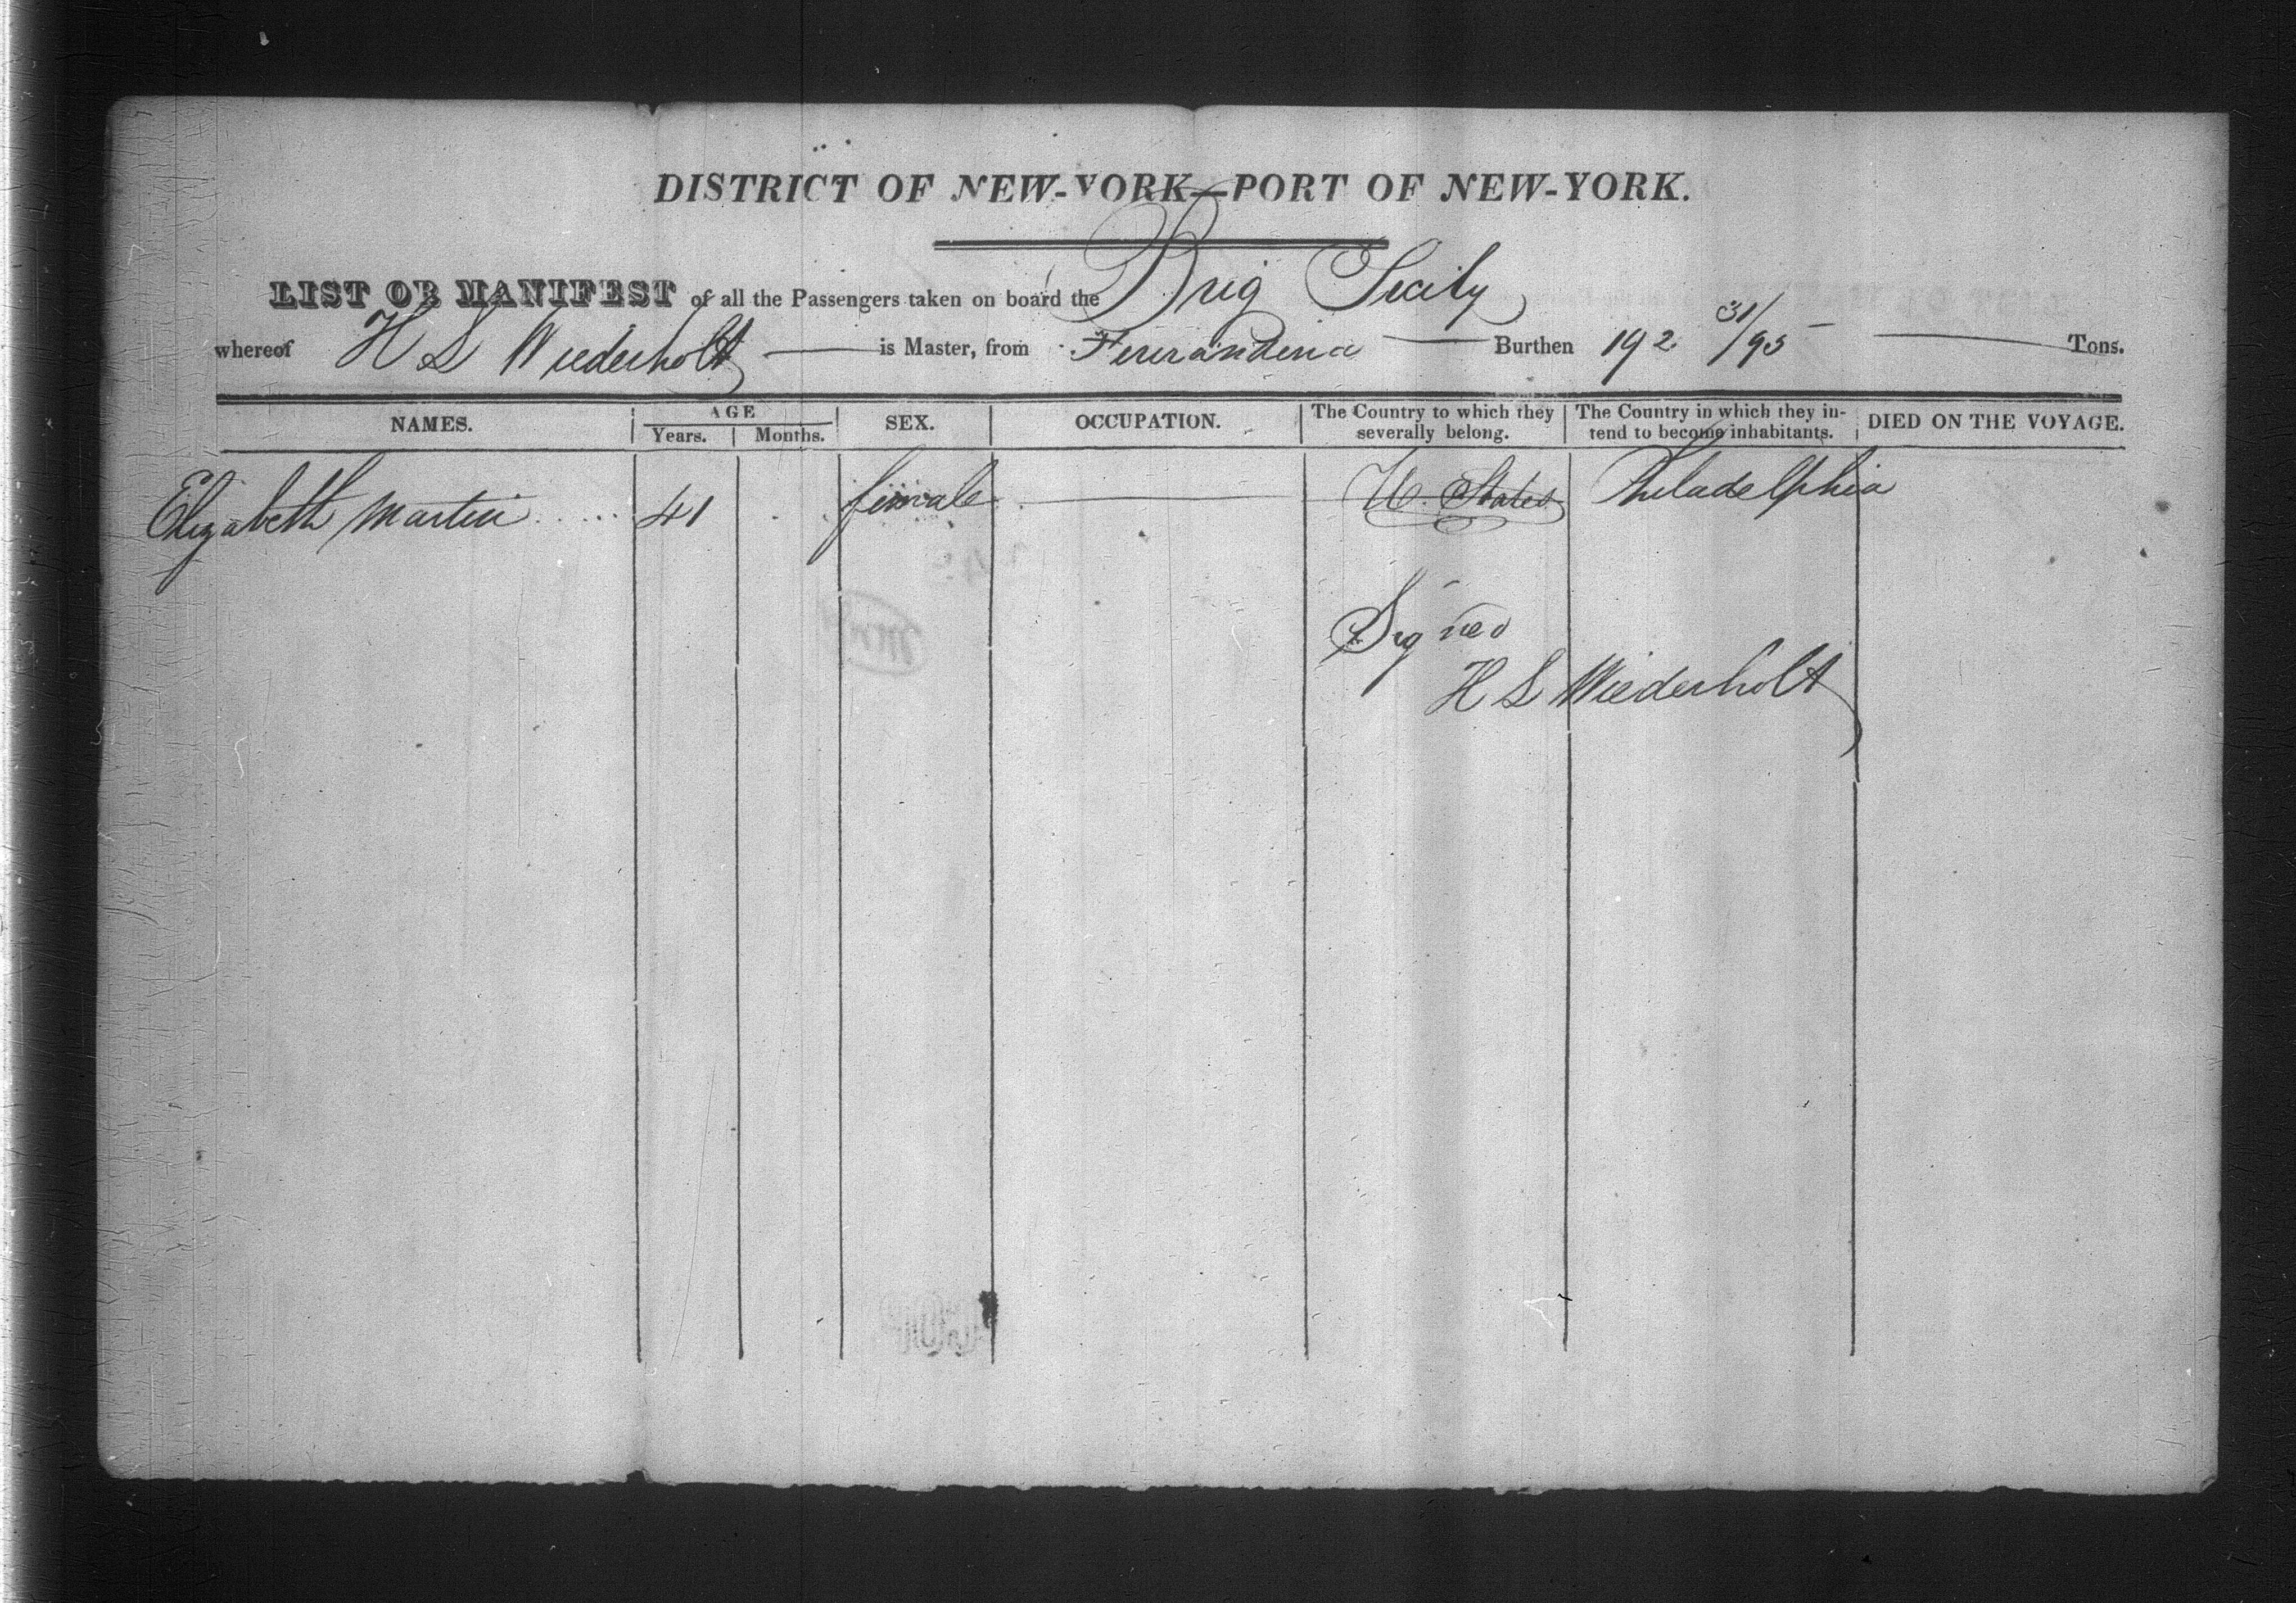 DISTRICT OF NEW-YORK—PORT OF NEW-YORK.
LIST OR MANIFEST of all the Passengers taken on board the Brig Sicily
whereof H S Wiederholt is Master, from Ferrandina Burthen 192 31/95 Tons.
NAMES. AGE Years. Months. SEX. OCCUPATION. The Country to which they severally belong. The Country in which they intend to become inhabitants. DIED ON THE VOYAGE.
Elizabeth Martin 41 female U. States Philadelphia
Signed
H S Wiederholt